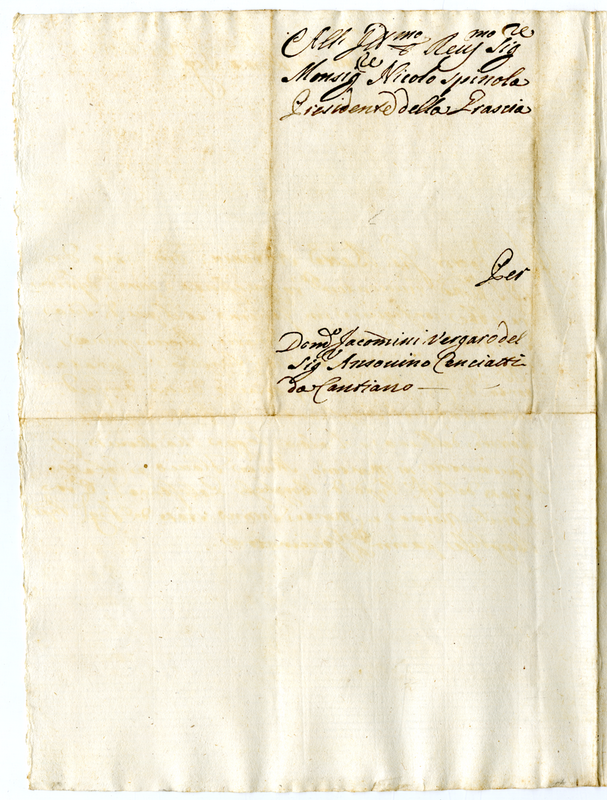 All' Ill.mo e Reu.mo Sig.re
Monsig.re Nicolò Spinola
Presidente della Grascia
Per
Dom.co Jacomini Vergaro del
Sig.r Ansouino Cenciatti
da Cantiano